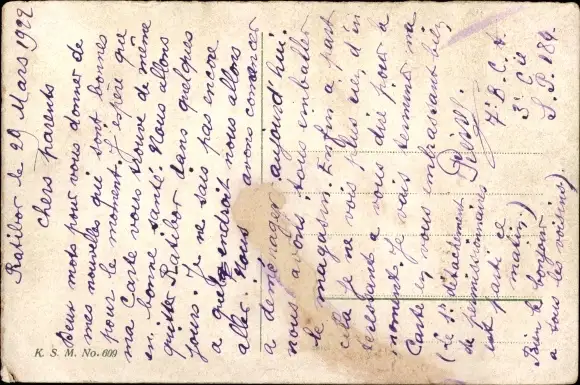 Ratibor le 29 Mars 1922
chers parents
Deux mots pour vous donner de
mes nouvelles qui sont bonnes
pour le moment. J'espère que
ma Carte vous trouve de même
en bonne santé. Nous allons
quitte Ratibor dans quelques
jours. Je ne sais pas encore
a quel endroit nous allons
aller. Nous avons comencer
a deménager aujourd'hui.
nous avons tous emballer
le magasin. Enfin a part
cela je ne vois plus rien d'in
teressant a vous dire pour le
moment. Je vais terminer ma
Carte en vous embrassant bien
(Le 3e détachement
de permissionnaires
est parti ce
matin.)
Bien le bonjour
a tous les voisins)
7e B. C. A.
3e Cie
S. P. 184.
K. S. M. No. 609